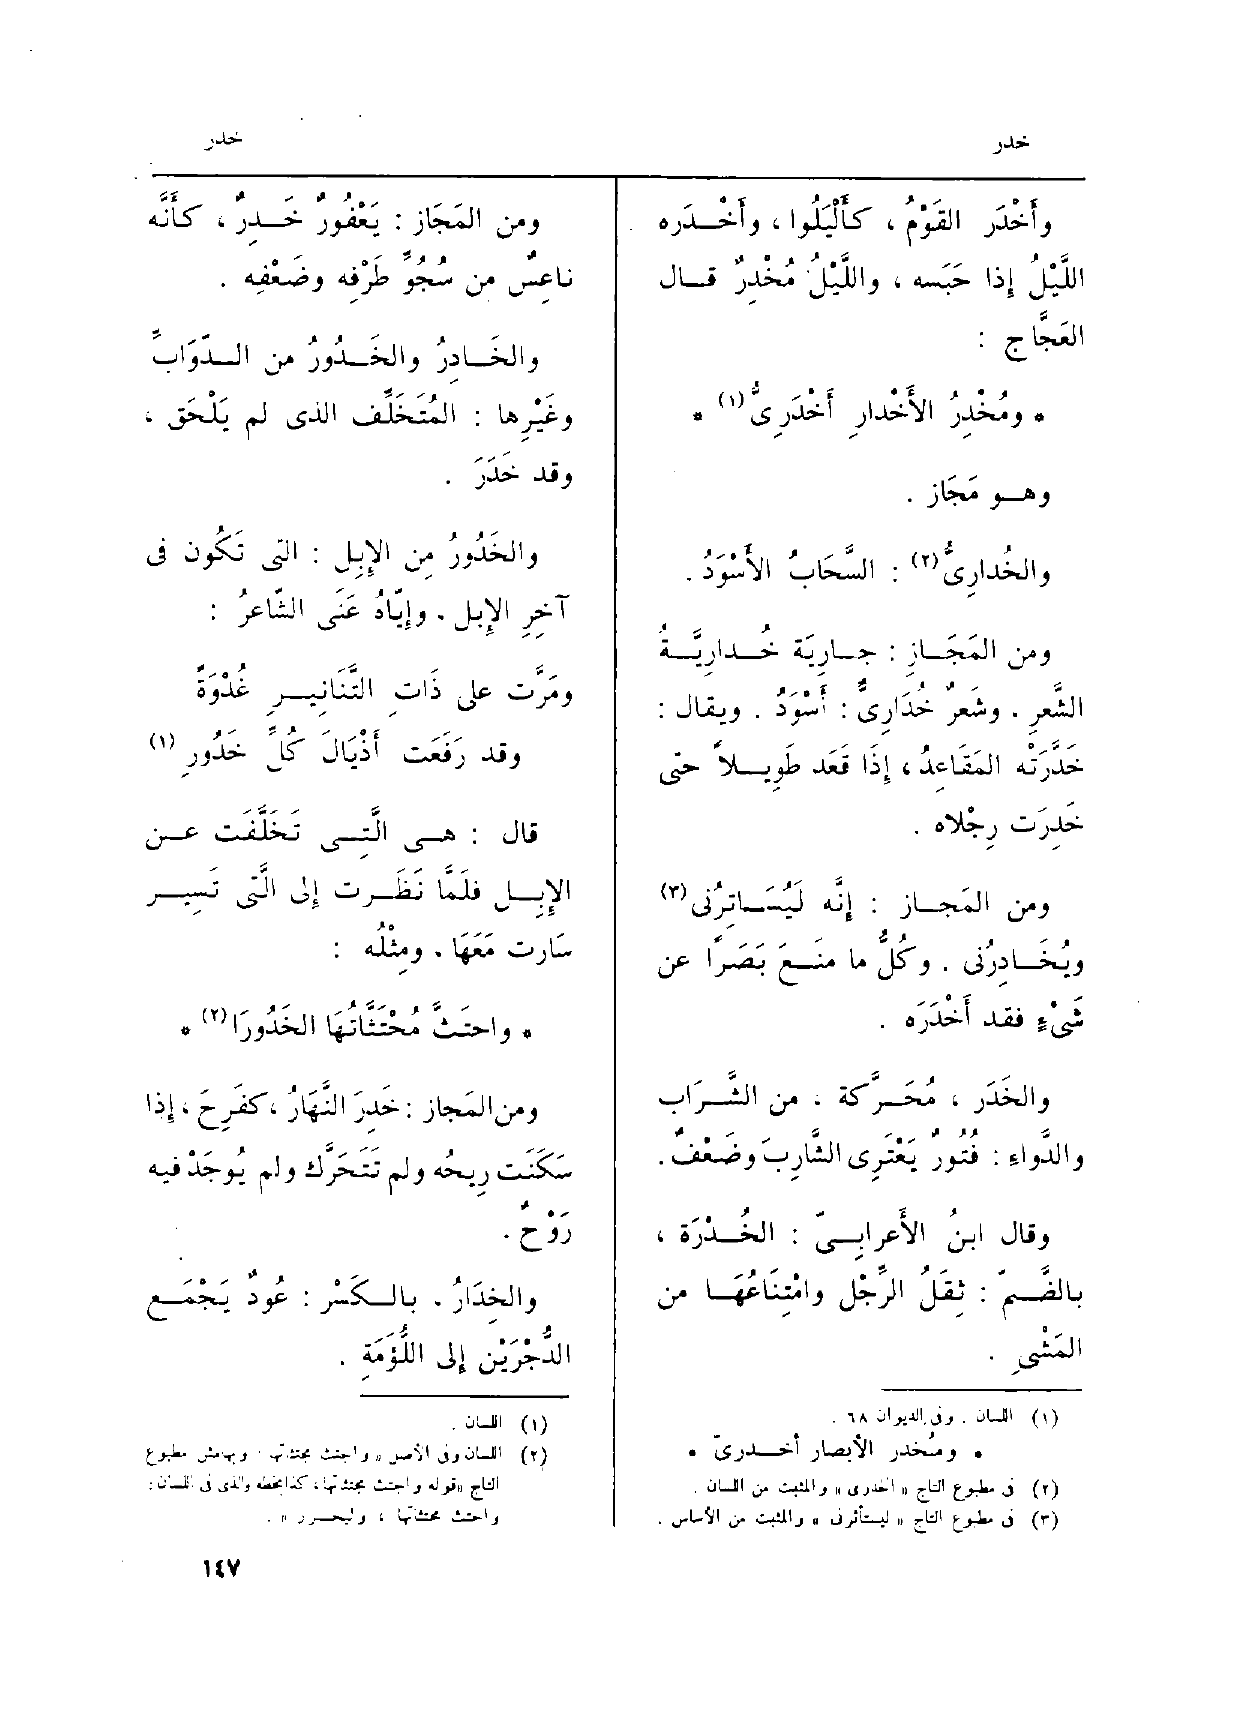 خدر
خدر
وأَخْدَر القَوْمُ ، كأَلْيَلُوا ، وأَخْـدَره
اللَّيْلُ إِذا حَبَسه ، واللَّيْلُ مُخْدِرٌ قـال
العَجَّاج :
* ومُخْدِرُ الأَخْدارِ أَخْدَرِىُّ (١) *
وهـو مَجَاز .
والخُدارِىُّ (٢) : السَّحَابُ الأَسْوَدُ .
ومن المَجَـازِ : جـارِيَة خُـدارِيَّـةُ
الشَّعرِ . وشَعرٌ خُدَارِىٌّ : أَسْوَدُ . ويقال :
خَدَّرَتْه المَقَاعِدُ ، إِذَا قَعَد طَوِيـلاً حتى
خَدِرَت رِجْلاه .
ومن المَجـاز : إِنَّه لَيُسَـاتِرُنى (٣)
ويُخَـادِرُنى . وكُلُّ ما منَـعَ بَصَرًا عن
شَىْءٍ فقد أَخْدَرَه .
والخَدَر ، مُحَـرَّكة ، من الشَّـرَاب
والدَّواءِ : فُتُورٌ يَعْتَرِى الشَّارِبَ وضَـعْفٌ .
وقال ابنُ الأَعرابِـىّ : الخُـدْرَة ،
بالضَّـمّ : ثِقَلُ الرِّجْل وامْتِنَاعُهَـا من
المَشْىِ .
(١) اللسان . وفى الديوان ٦٨ .
* ومُخدر الأبصار أخـدرىّ *
(٢) فى مطبوع التاج « الخدرى » والمثبت من اللسان .
(٣) فى مطبوع التاج « ليستأثرنى » والمثبت من الأساس .
ومن المَجَاز : يَعْفُورٌ خَـدِرٌ ، كأَنَّه
ناعِسٌ من سُجُوِّ طَرْفِه وضَعْفِه .
والخَـادِرُ والخَـدُورُ من الـدَّوَابِّ
وغَيْرِها : المُتَخَلِّف الذى لم يَلْحَق ،
وقد خَدَرَ .
والخَدُورُ مِن الإِبِل : التى تَكُون فى
آخِرِ الإِبل . وإِيّاهُ عَنَى الشّاعرُ :
ومَرَّت على ذَاتِ التَّنَانِيـرِ غُدْوَةً
وقد رَفَعَت أَذْيَالَ كُلِّ خَدُورِ (١)
قال : هـى الَّتِـى تَخَلَّفَت عـن
الإِبِـل فلَمَّا نَظَـرت إِلى الَّتى تَسِيـر
سَارت مَعَهَا . ومِثْلُه :
* واحتَثَّ مُحْتَثَّاتُهَا الخَدُورَا (٢) *
ومن المَجاز : خَدِرَ النَّهَارُ ، كفَرِحَ ، إِذا
سَكَنَت رِيحُه ولم تَتَحَرَّك ولم يُوجَدْ فيه
رَوْحٌ .
والخِدَارُ . بالـكَسْر : عُودٌ يَجْمَـع
الدُّجْرَيْن إِلى اللُّؤَمَةِ .
(١) اللسان .
(٢) اللسان وفى الأصل « واحتث محتثاتها . وبهامش مطبوع
التاج « قوله واحتث محتثاتها ، كذا بخطه والذى فى اللسان :
واحتث محتثاتها ، وليحـرر » .
١٤٧